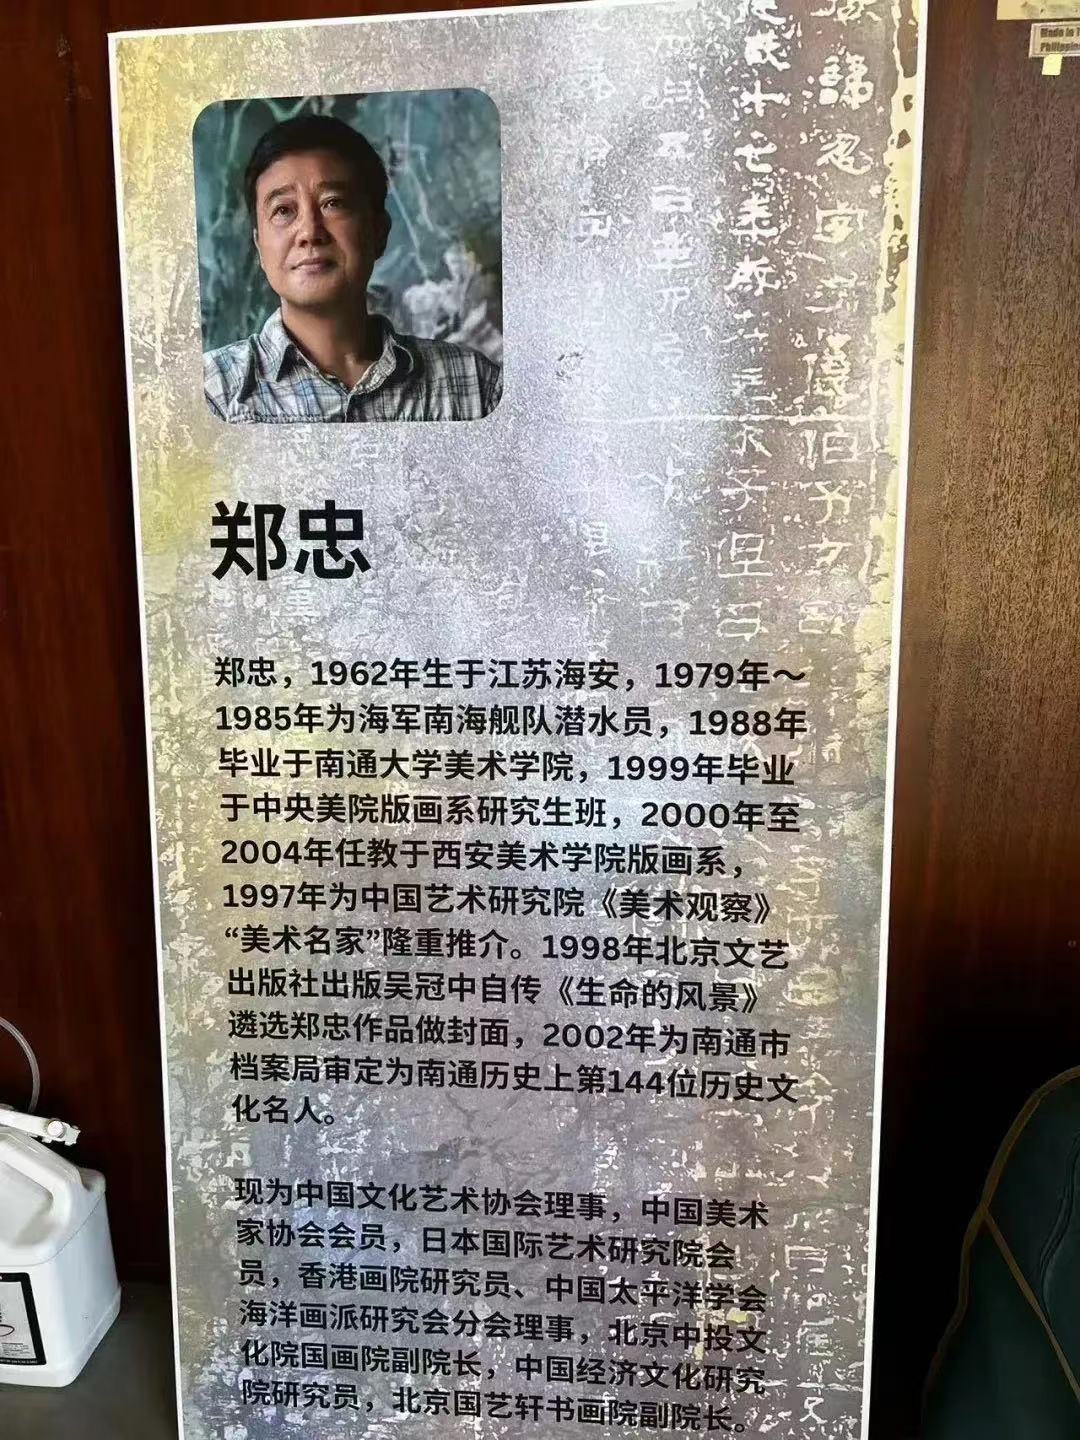 郑忠
郑忠，1962年生于江苏海安，1979年～
1985年为海军南海舰队潜水员，1988年
毕业于南通大学美术学院，1999年毕业
于中央美院版画系研究生班，2000年至
2004年任教于西安美术学院版画系，
1997年为中国艺术研究院《美术观察》
“美术名家”隆重推介。1998年北京文艺
出版社出版吴冠中自传《生命的风景》
遴选郑忠作品做封面，2002年为南通市
档案局审定为南通历史上第144位历史文
化名人。
现为中国文化艺术协会理事，中国美术
家协会会员，日本国际艺术研究院会
员，香港画院研究员、中国太平洋学会
海洋画派研究会分会理事，北京中投文
化院国画院副院长，中国经济文化研究
院研究员，北京国艺轩书画院副院长。
Made in T
Philippin